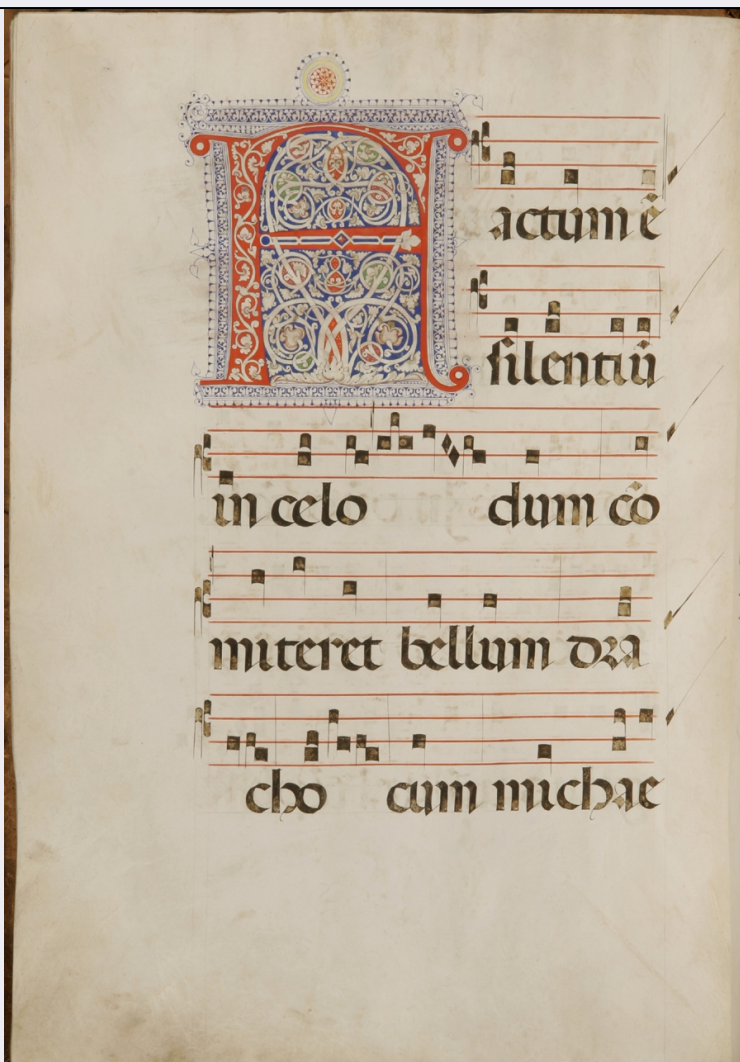 Factum ē
silentiū
in celo dum cō
miteret bellum dra
cho cum michae